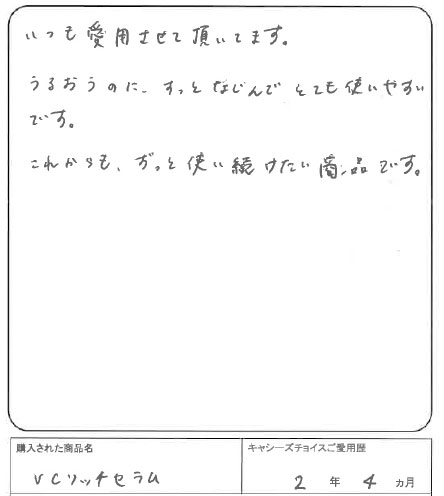 いつも愛用させて頂いてます。
うるおうのに、すっとなじんでとても使いやすい
です。
これからも、ずっと使い続けたい商品です。
購入された商品名
VCリッチセラム
キャシーズチョイスご愛用歴
2年4ヵ月